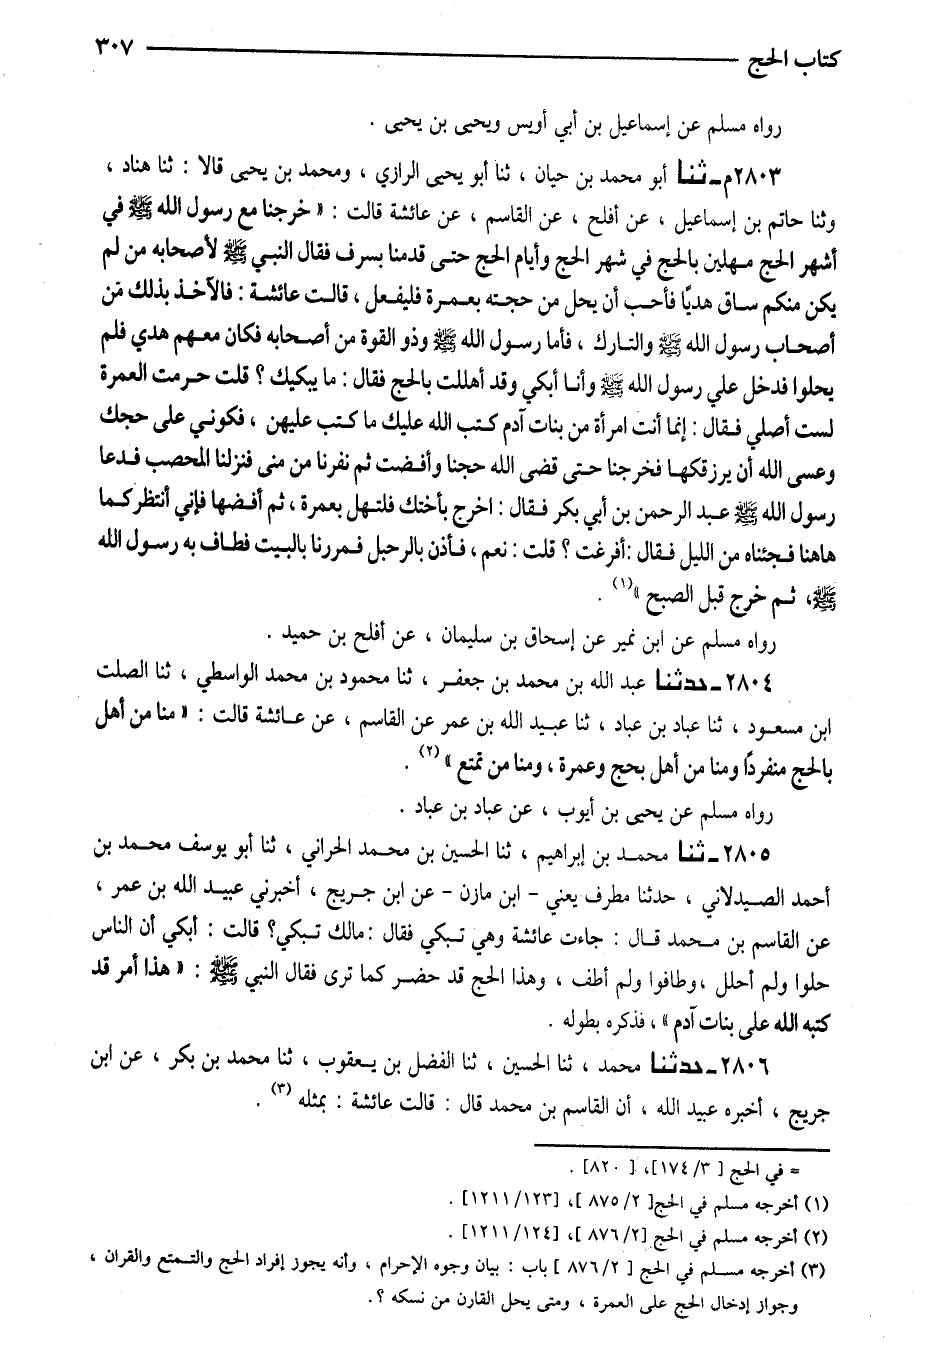 كتاب الحج ٣٠٧
رواه مسلم عن إسماعيل بن أبي أويس ويحيى بن يحيى .
٢٨٠٣م ـ ثنا أبو محمد بن حيان ، ثنا أبو يحيى الرازي ، ومحمد بن يحيى قالا : ثنا هناد ،
وثنا حاتم بن إسماعيل ، عن أفلح ، عن القاسم ، عن عائشة قالت : « خرجنا مع رسول الله ﷺ في
أشهر الحج مهلين بالحج في شهر الحج وأيام الحج حتى قدمنا بسرف فقال النبي ﷺ لأصحابه من لم
يكن منكم ساق هديًا فأحب أن يحل من حجته بعمرة فليفعل ، قالت عائشة : فالآخذ بذلك من
أصحاب رسول الله ﷺ والتارك ، فأما رسول الله ﷺ وذو القوة من أصحابه فكان معهم هدي فلم
يحلوا فدخل علي رسول الله ﷺ وأنا أبكي وقد أهللت بالحج فقال : ما يبكيك ؟ قلت حرمت العمرة
لست أصلي فقال : إنما أنت امرأة من بنات آدم كتب الله عليك ما كتب عليهن ، فكوني على حجك
وعسى الله أن يرزقكها فخرجنا حتى قضى الله حجنا وأفضت ثم نفرنا من منى فنزلنا المحصب فدعا
رسول الله ﷺ عبد الرحمن بن أبي بكر فقال : اخرج بأختك فلتهل بعمرة ، ثم أفضها فإني أنتظركما
هاهنا فجئناه من الليل فقال :أفرغت ؟ قلت : نعم ، فأذن بالرحيل فمررنا بالبيت فطاف به رسول الله
ﷺ، ثم خرج قبل الصبح »(١) .
رواه مسلم عن ابن نمير عن إسحاق بن سليمان ، عن أفلح بن حميد .
٢٨٠٤ ـ حدثنا عبد الله بن محمد بن جعفر ، ثنا محمود بن محمد الواسطي ، ثنا الصلت
ابن مسعود ، ثنا عباد بن عباد ، ثنا عبيد الله بن عمر عن القاسم ، عن عائشة قالت : « منا من أهل
بالحج منفردًا ومنا من أهل بحج وعمرة ، ومنا من تمتع »(٢) .
رواه مسلم عن يحيى بن أيوب ، عن عباد بن عباد .
٢٨٠٥ ـ ثنا محمد بن إبراهيم ، ثنا الحسين بن محمد الحراني ، ثنا أبو يوسف محمد بن
أحمد الصيدلاني ، حدثنا مطرف يعني - ابن مازن - عن ابن جريج ، أخبرني عبيد الله بن عمر ،
عن القاسم بن محمد قال : جاءت عائشة وهي تبكي فقال :مالك تبكي؟ قالت : أبكي أن الناس
حلوا ولم أحلل ،وطافوا ولم أطف ، وهذا الحج قد حضر كما ترى فقال النبي ﷺ : « هذا أمر قد
كتبه الله على بنات آدم » ، فذكره بطوله .
٢٨٠٦ ـ حدثنا محمد ، ثنا الحسين ، ثنا الفضل بن يعقوب ، ثنا محمد بن بكر ، عن ابن
جريج ، أخبره عبيد الله ، أن القاسم بن محمد قال : قالت عائشة : بمثله (٣) .
= في الحج [ ٣/ ١٧٤]، [ ٨٢٠] .
(١) أخرجه مسلم في الحج[ ٢/ ٨٧٥ ]، [١٢١١/١٢٣] .
(٢) أخرجه مسلم في الحج [٢/ ٨٧٦ ]، [١٢١١/١٢٤] .
(٣) أخرجه مسلم في الحج [ ٢/ ٨٧٦ ] باب : بيان وجوه الإحرام ، وأنه يجوز إفراد الحج والتمتع والقران ،
وجواز إدخال الحج على العمرة ، ومتى يحل القارن من نسكه ؟.